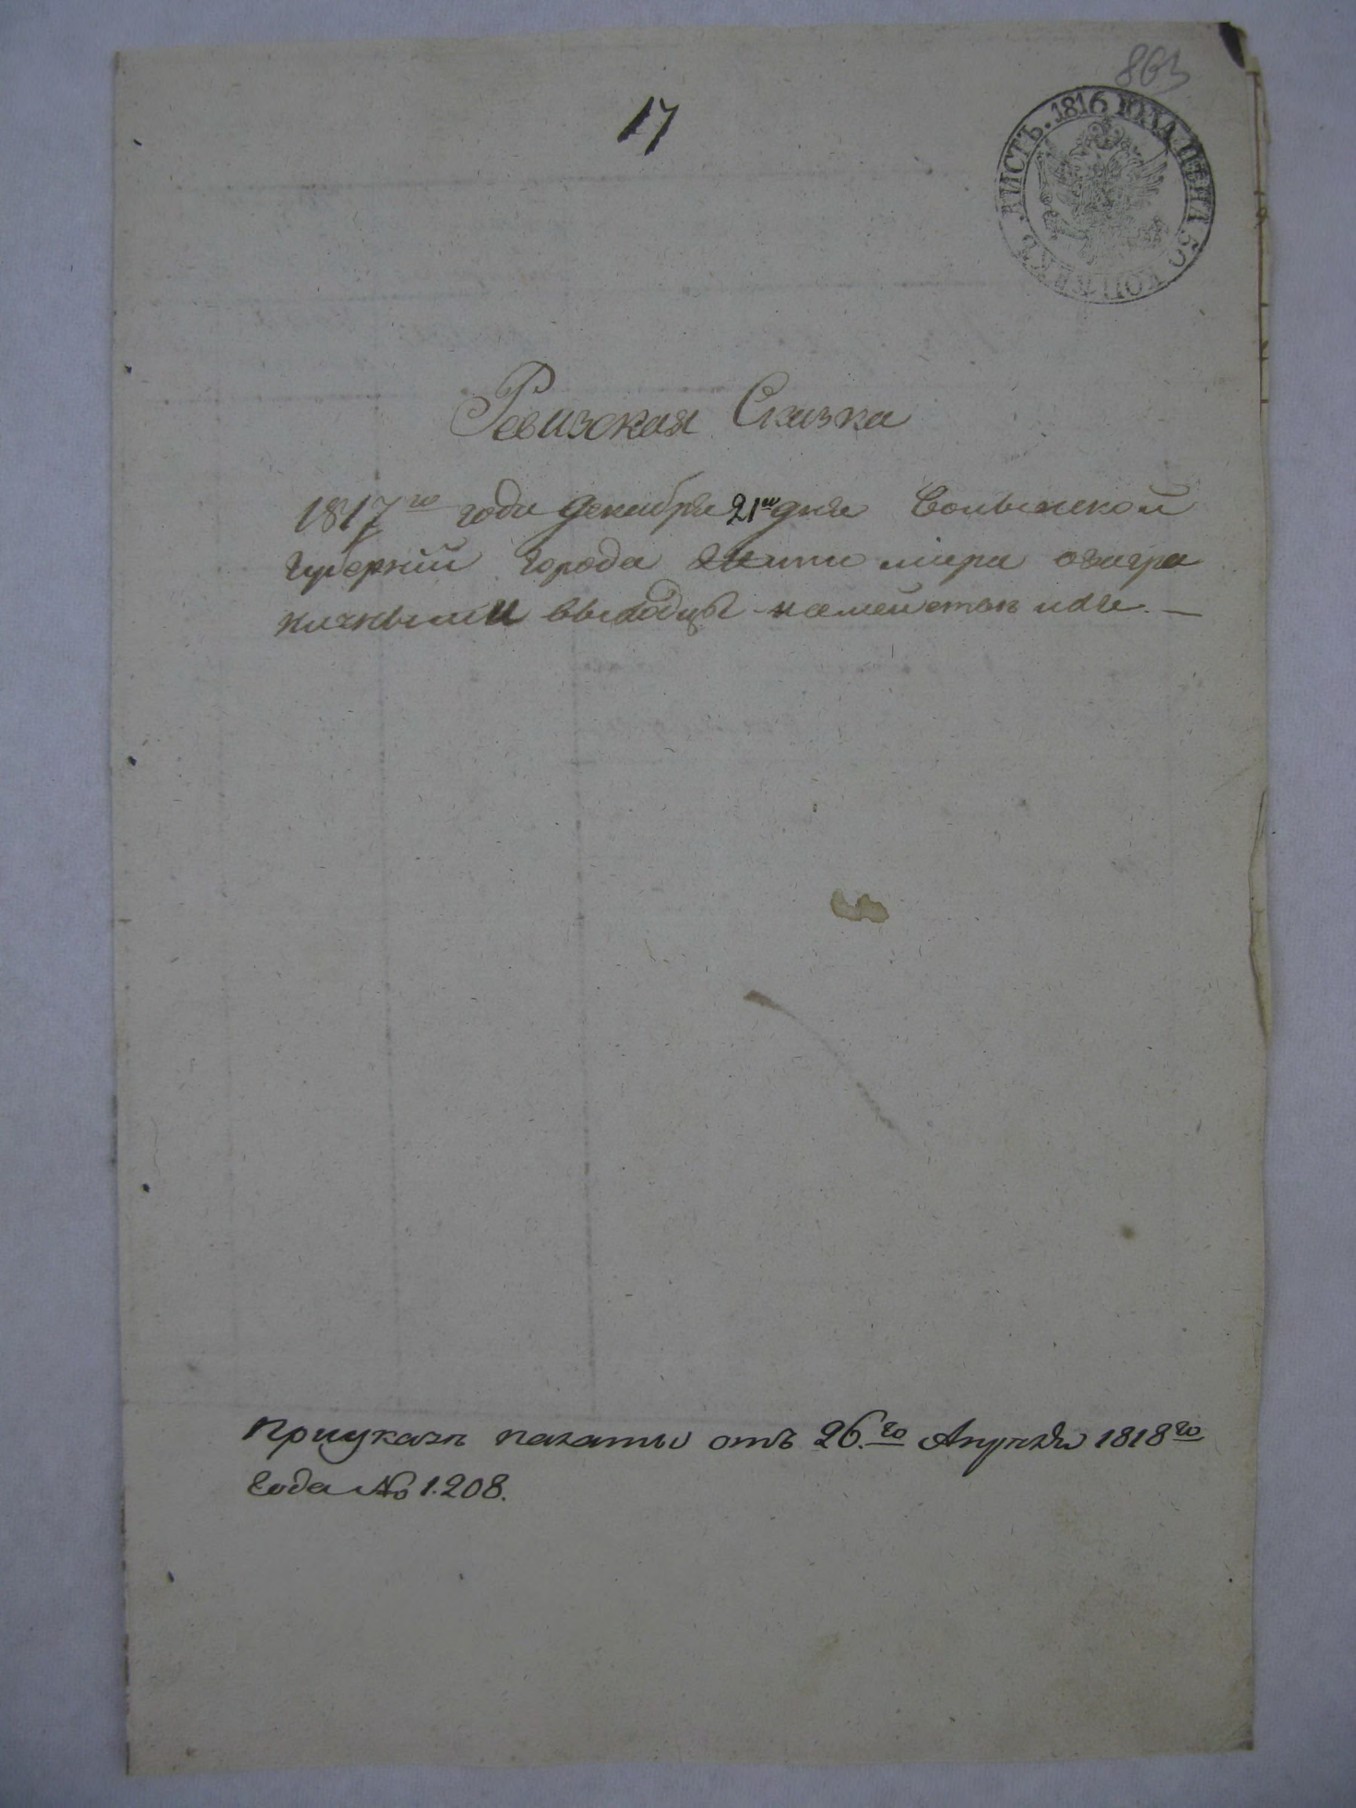 863
17
ЛИСТЪ. 1816 ГОДА ЦѢНА 50 КОПѢЕКЪ.
Ревизская Сказка
1817го года декабря 21го дня Волынской
Губерніи Города Житомира озагра
ничными выходцы
При указѣ палаты отъ 26.го Апрѣля 1818го
Года № 1.208.